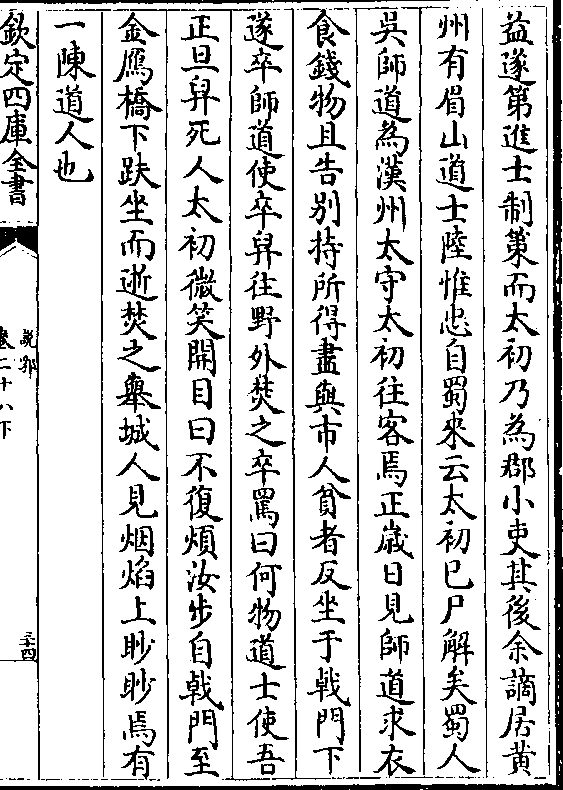 益遂第進士制䇿而太初乃為郡小吏其後余謫居黄
州有眉山道士陸惟忠自蜀來云太初已尸解矣蜀人
吳師道為漢州太守太初往客焉正歳日見師道求衣
食錢物且告别持所得盡與市人貧者反坐于㦸門下
遂卒師道使卒舁往野外焚之卒罵曰何物道士使吾
正旦舁死人太初微笑開目曰不復煩汝步自㦸門至
金鴈橋下趺坐而逝焚之舉城人見烟焰上眇眇焉有
一陳道人也
欽定四庫全書
説郛
卷二十八下
三十四